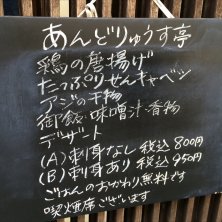 あんどりゅうす亭
鶏の唐揚げ
たっぷりせんキャベツ
アジの干物
御飯・味噌汁・香物
デザート
(A) 刺身なし 税込 800円
(B) 刺身あり 税込 950円
ごはんのおかわり無料です
喫煙席ございます